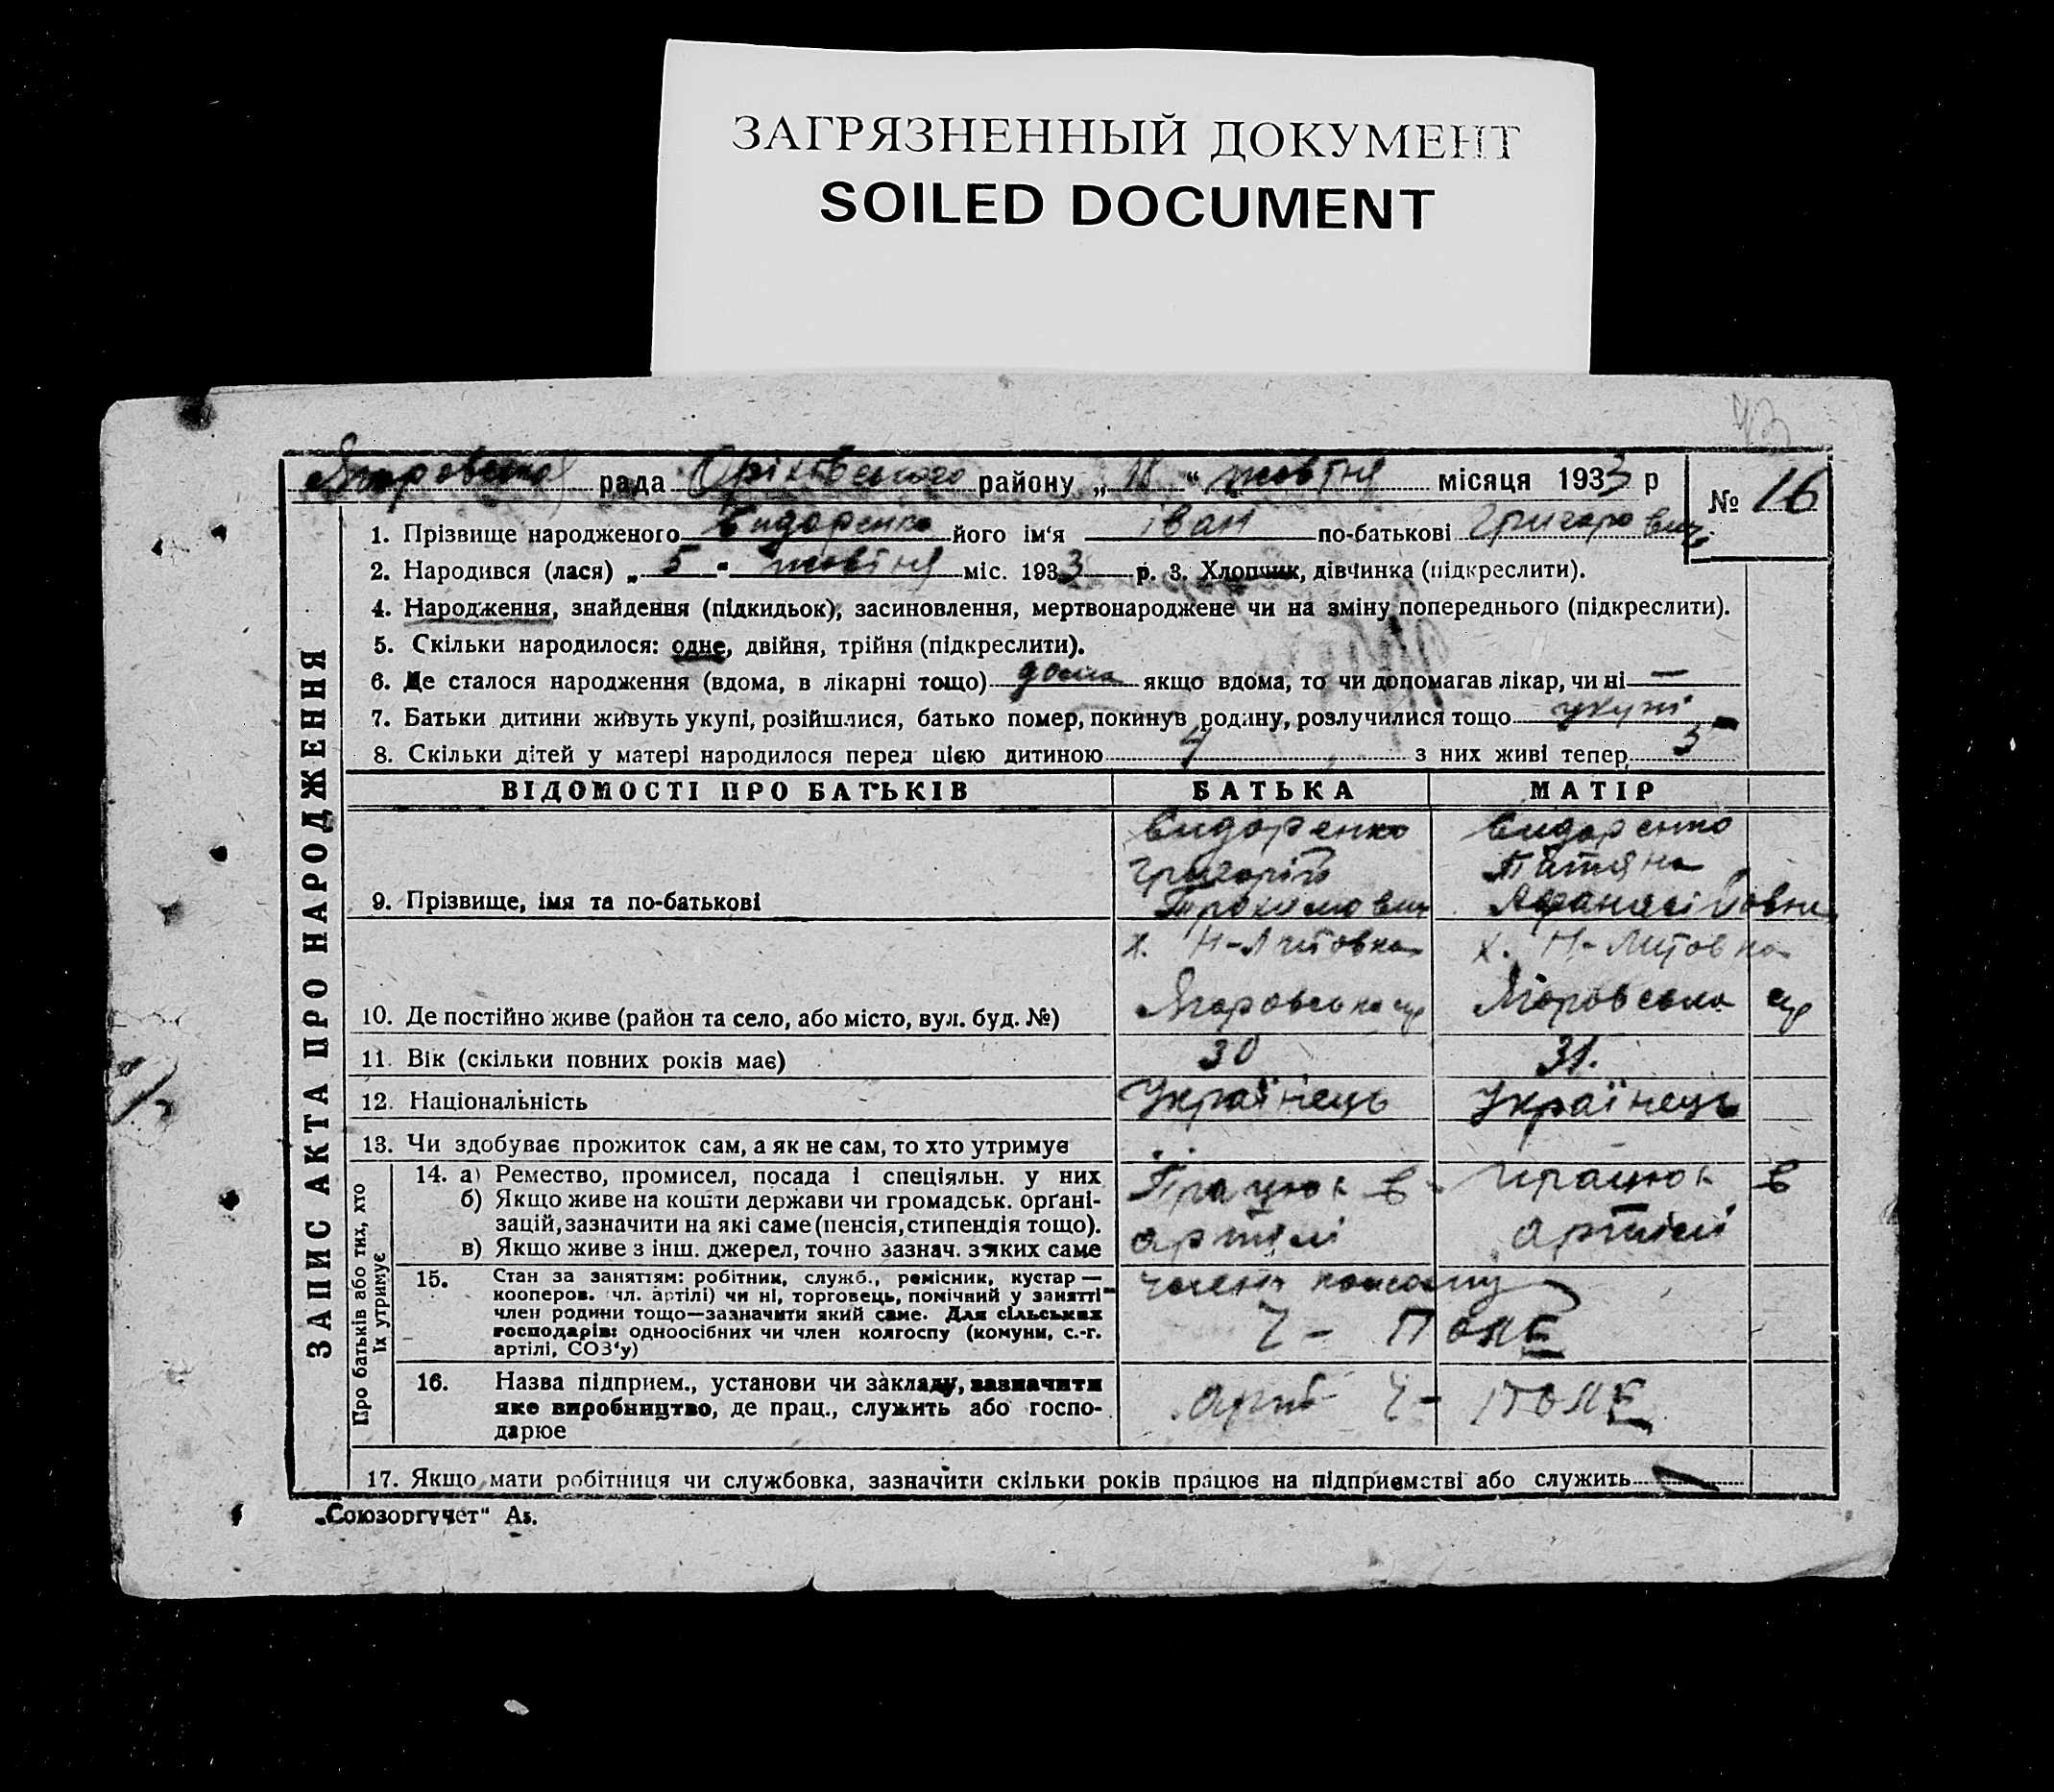 ЗАГРЯЗНЕННЫЙ ДОКУМЕНТ
SOILED DOCUMENT
рада Оріхівського району „ “ жовтня місяця 1933 р
№ 16
1. Прізвище народженого Сидоренко його ім‘я Іван по-батькові Григорович
2. Народився (лася) „ 5 “ жовтня міс. 1933 р. 3. Хлопчик, дівчинка (підкреслити).
4. Народження, знайдення (підкидьок), засиновлення, мертвонароджене чи на зміну попереднього (підкреслити).
5. Скільки народилося: одне, двійня, трійня (підкреслити).
6. Де сталося народження (вдома, в лікарні тощо) дома якщо вдома, то чи допомагав лікар, чи ні —
7. Батьки дитини живуть укупі, розійшлися, батько помер, покинув родину, розлучилися тощо укупі
8. Скільки дітей у матері народилося перед цією дитиною 4 з них живі тепер 3
ЗАПИС АКТА ПРО НАРОДЖЕННЯ
ВІДОМОСТІ ПРО БАТЬКІВ БАТЬКА МАТІР
Сидоренко Сидоренко
Григорій Татяна
9. Прізвище, імя та по-батькові Трохимович Афанасіївна
х. Н-Литовка х. Н-Литовка
10. Де постійно живе (район та село, або місто, вул. буд. №)
11. Вік (скільки повних років має) 30 31.
12. Національність Українець Українець
13. Чи здобуває прожиток сам, а як не сам, то хто утримує
Про батьків або тих, хто
їх утримує
14. а) Ремество, промисел, посада і спеціяльн. у них
б) Якщо живе на кошти держави чи громадськ. орґані-
зацій, зазначити на які саме (пенсія, стипендія тощо).
в) Якщо живе з інш. джерел, точно зазнач. з яких саме
Працює в працює в
артілі артілі
15. Стан за заняттям: робітник, служб., ремісник, кустар —
кооперов. (чл. артілі) чи ні, торговець, помічний у занятті
член родини тощо—зазначити який саме. Для сільських
господарів: одноосібних чи член колгоспу (комуни, с.-г.
артілі, СОЗ‘у)
член
Ч - ПОЛЕ
16. Назва підприєм., установи чи закладу, зазначити
яке виробництво, де прац., служить або госпо-
дарює
Арт Ч - ПОЛЕ
17. Якщо мати робітниця чи службовка, зазначити скільки років працює на підприємстві або служить
„Союзоргучет“ Аз.